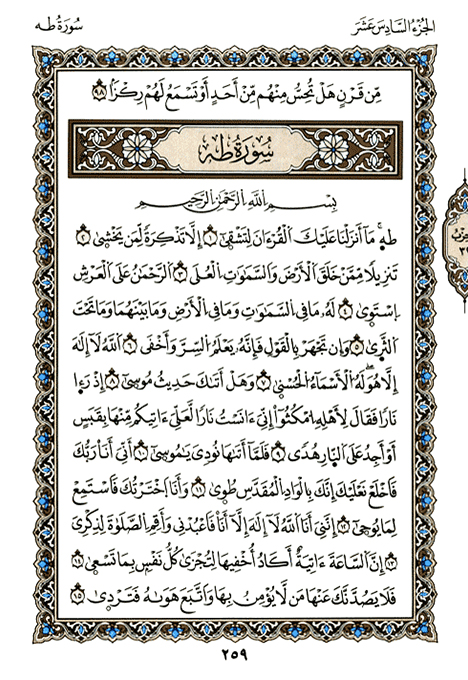 سُورَةُ طه
الجُزْءُ السَّادِسَ عَشَرَ
مِّن قَرْنٍ هَلْ تُحِسُّ مِنْهُم مِّنْ أَحَدٍ أَوْ تَسْمَعُ لَهُمْ رِكْزًا ٩٨
سُورَةُ طه
بِسْمِ اللَّهِ الرَّحْمَٰنِ الرَّحِيمِ
طه مَا أَنزَلْنَا عَلَيْكَ الْقُرْءَانَ لِتَشْقَىٰ ١ إِلَّا تَذْكِرَةً لِّمَن يَخْشَىٰ ٢
تَنزِيلًا مِّمَّنْ خَلَقَ الْأَرْضَ وَالسَّمَٰوَٰتِ الْعُلَى ٣ الرَّحْمَٰنُ عَلَى الْعَرْشِ
اِسْتَوَىٰ ٤ لَهُ مَا فِي السَّمَٰوَٰتِ وَمَا فِي الْأَرْضِ وَمَا بَيْنَهُمَا وَمَا تَحْتَ
الثَّرَىٰ ٥ وَإِن تَجْهَرْ بِالْقَوْلِ فَإِنَّهُ يَعْلَمُ السِّرَّ وَأَخْفَى ٦ اللَّهُ لَا إِلَٰهَ
إِلَّا هُوَ لَهُ الْأَسْمَاءُ الْحُسْنَىٰ ٧ وَهَلْ أَتَىٰكَ حَدِيثُ مُوسَىٰ ٨ إِذْ رَءَا
نَارًا فَقَالَ لِأَهْلِهِ اِمْكُثُوا إِنِّيَ ءَانَسْتُ نَارًا لَّعَلِّيَ ءَاتِيكُم مِّنْهَا بِقَبَسٍ
أَوْ أَجِدُ عَلَى النَّارِ هُدًى ٩ فَلَمَّا أَتَىٰهَا نُودِيَ يَٰمُوسَىٰ ١٠ أَنِّيَ أَنَا رَبُّكَ
فَاخْلَعْ نَعْلَيْكَ إِنَّكَ بِالْوَادِ الْمُقَدَّسِ طُوَىٰ ١١ وَأَنَا اخْتَرْتُكَ فَاسْتَمِعْ
لِمَا يُوحَىٰ ١٢ إِنَّنِيَ أَنَا اللَّهُ لَا إِلَٰهَ إِلَّا أَنَا فَاعْبُدْنِي وَأَقِمِ الصَّلَوٰةَ لِذِكْرِيَ
١٣ إِنَّ السَّاعَةَ ءَاتِيَةٌ أَكَادُ أُخْفِيهَا لِتُجْزَىٰ كُلُّ نَفْسٍ بِمَا تَسْعَىٰ ١٤
فَلَا يَصُدَّنَّكَ عَنْهَا مَن لَّا يُؤْمِنُ بِهَا وَاتَّبَعَ هَوَىٰهُ فَتَرْدَىٰ ١٥
٢٥٩